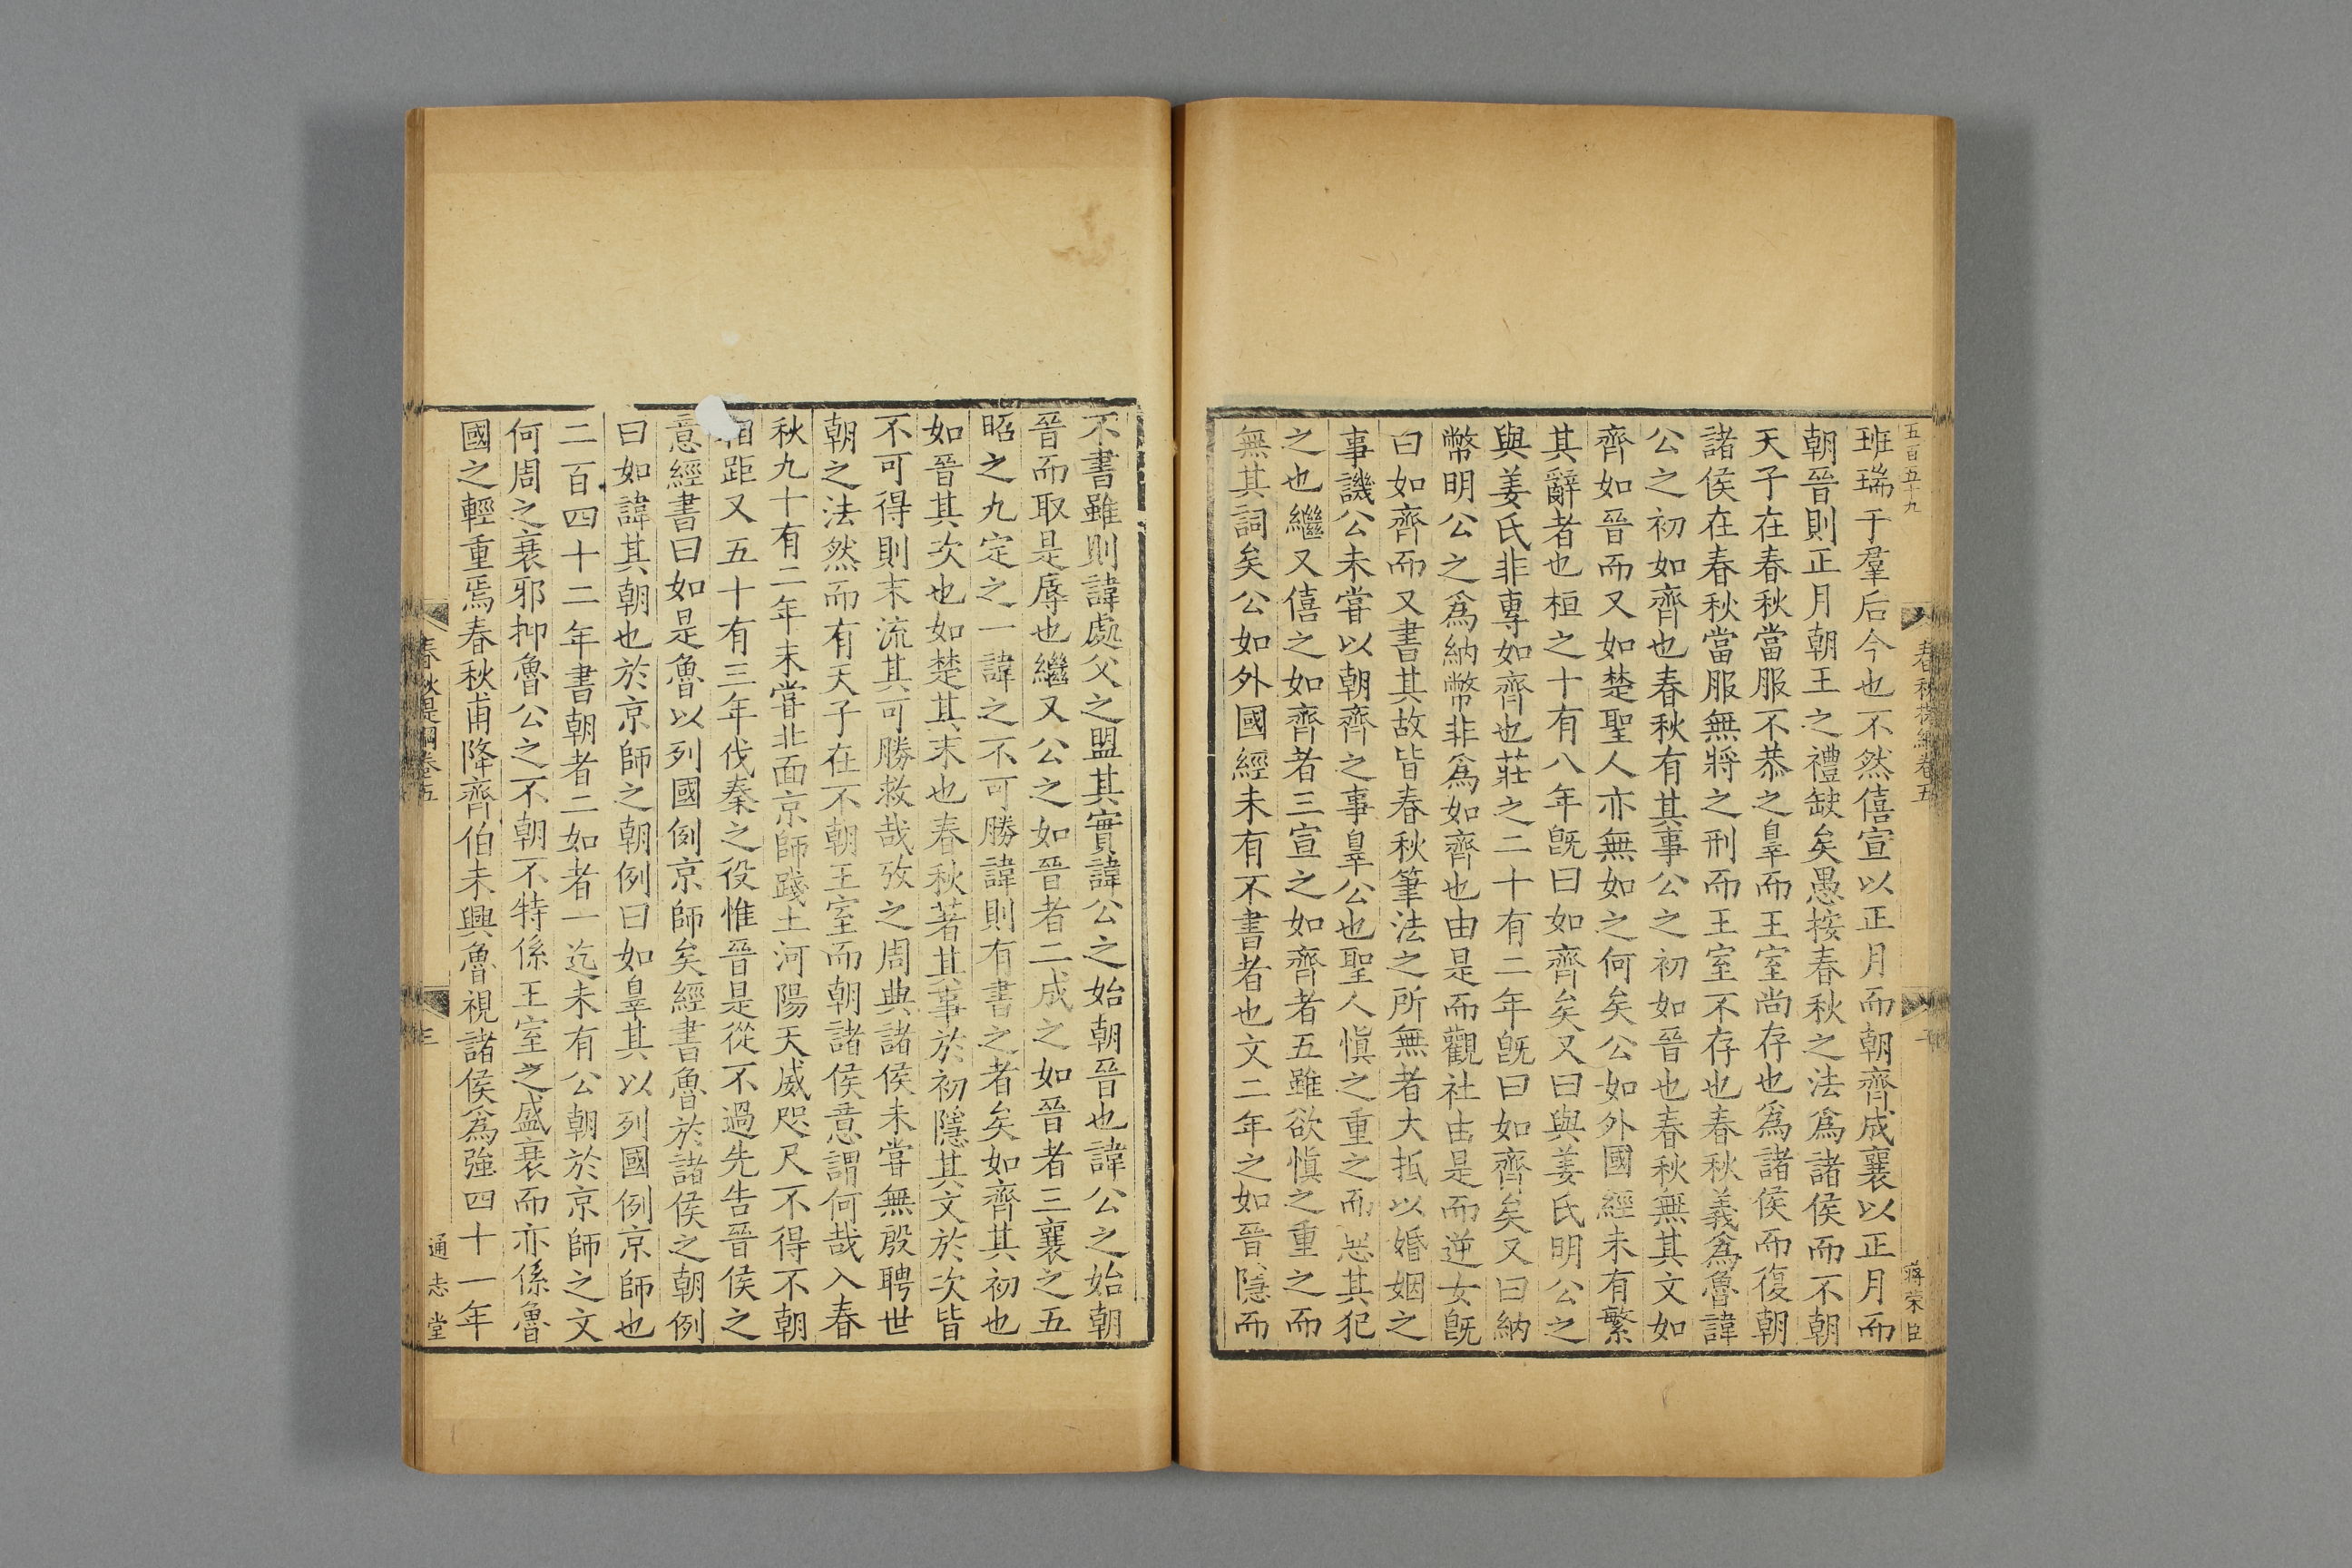 五百五十九
春秋提綱卷五
蔣榮臣
班瑞于羣后今也不然僖宣以正月而朝齊成襄以正月而
朝晉則正月朝王之禮缺矣愚按春秋之法爲諸侯而不朝
天子在春秋當服不恭之辠而王室尚存也爲諸侯而復朝
諸侯在春秋當服無將之刑而王室不存也春秋義爲魯諱
公之初如齊也春秋有其事公之初如晉也春秋無其文如
齊如晉而又如楚聖人亦無如之何矣公如外國經未有繁
其辭者也桓之十有八年旣曰如齊矣又曰與姜氏明公之
與姜氏非專如齊也莊之二十有二年旣曰如齊矣又曰納
幣明公之爲納幣非爲如齊也由是而觀社由是而逆女旣
曰如齊而又書其故皆春秋筆法之所無者大抵以婚姻之
事譏公未嘗以朝齊之事辠公也聖人愼之重之而惡其犯
之也繼又僖之如齊者三宣之如齊者五雖欲愼之重之而
無其詞矣公如外國經未有不書者也文二年之如晉隱而
不書雖則諱處父之盟其實諱公之始朝晉也諱公之始朝
晉而取是辱也繼又公之如晉者二成之如晉者三襄之五
昭之九定之一諱之不可勝諱則有書之者矣如齊其初也
如晉其次也如楚其末也春秋著其事於初隱其文於次皆
不可得則末流其可勝救哉攷之周典諸侯未嘗無殷聘世
朝之法然而有天子在不朝王室而朝諸侯意謂何哉入春
秋九十有二年未嘗北面京師踐土河陽天威咫尺不得不朝
相距又五十有三年伐秦之役惟晉是從不過先告晉侯之
意經書曰如是魯以列國例京師矣經書魯於諸侯之朝例
曰如諱其朝也於京師之朝例曰如辠其以列國例京師也
二百四十二年書朝者二如者一迄未有公朝於京師之文
何周之衰邪抑魯公之不朝不特係王室之盛衰而亦係魯
國之輕重焉春秋甫降齊伯未興魯視諸侯爲強四十一年
春秋提綱卷五
三
通志堂